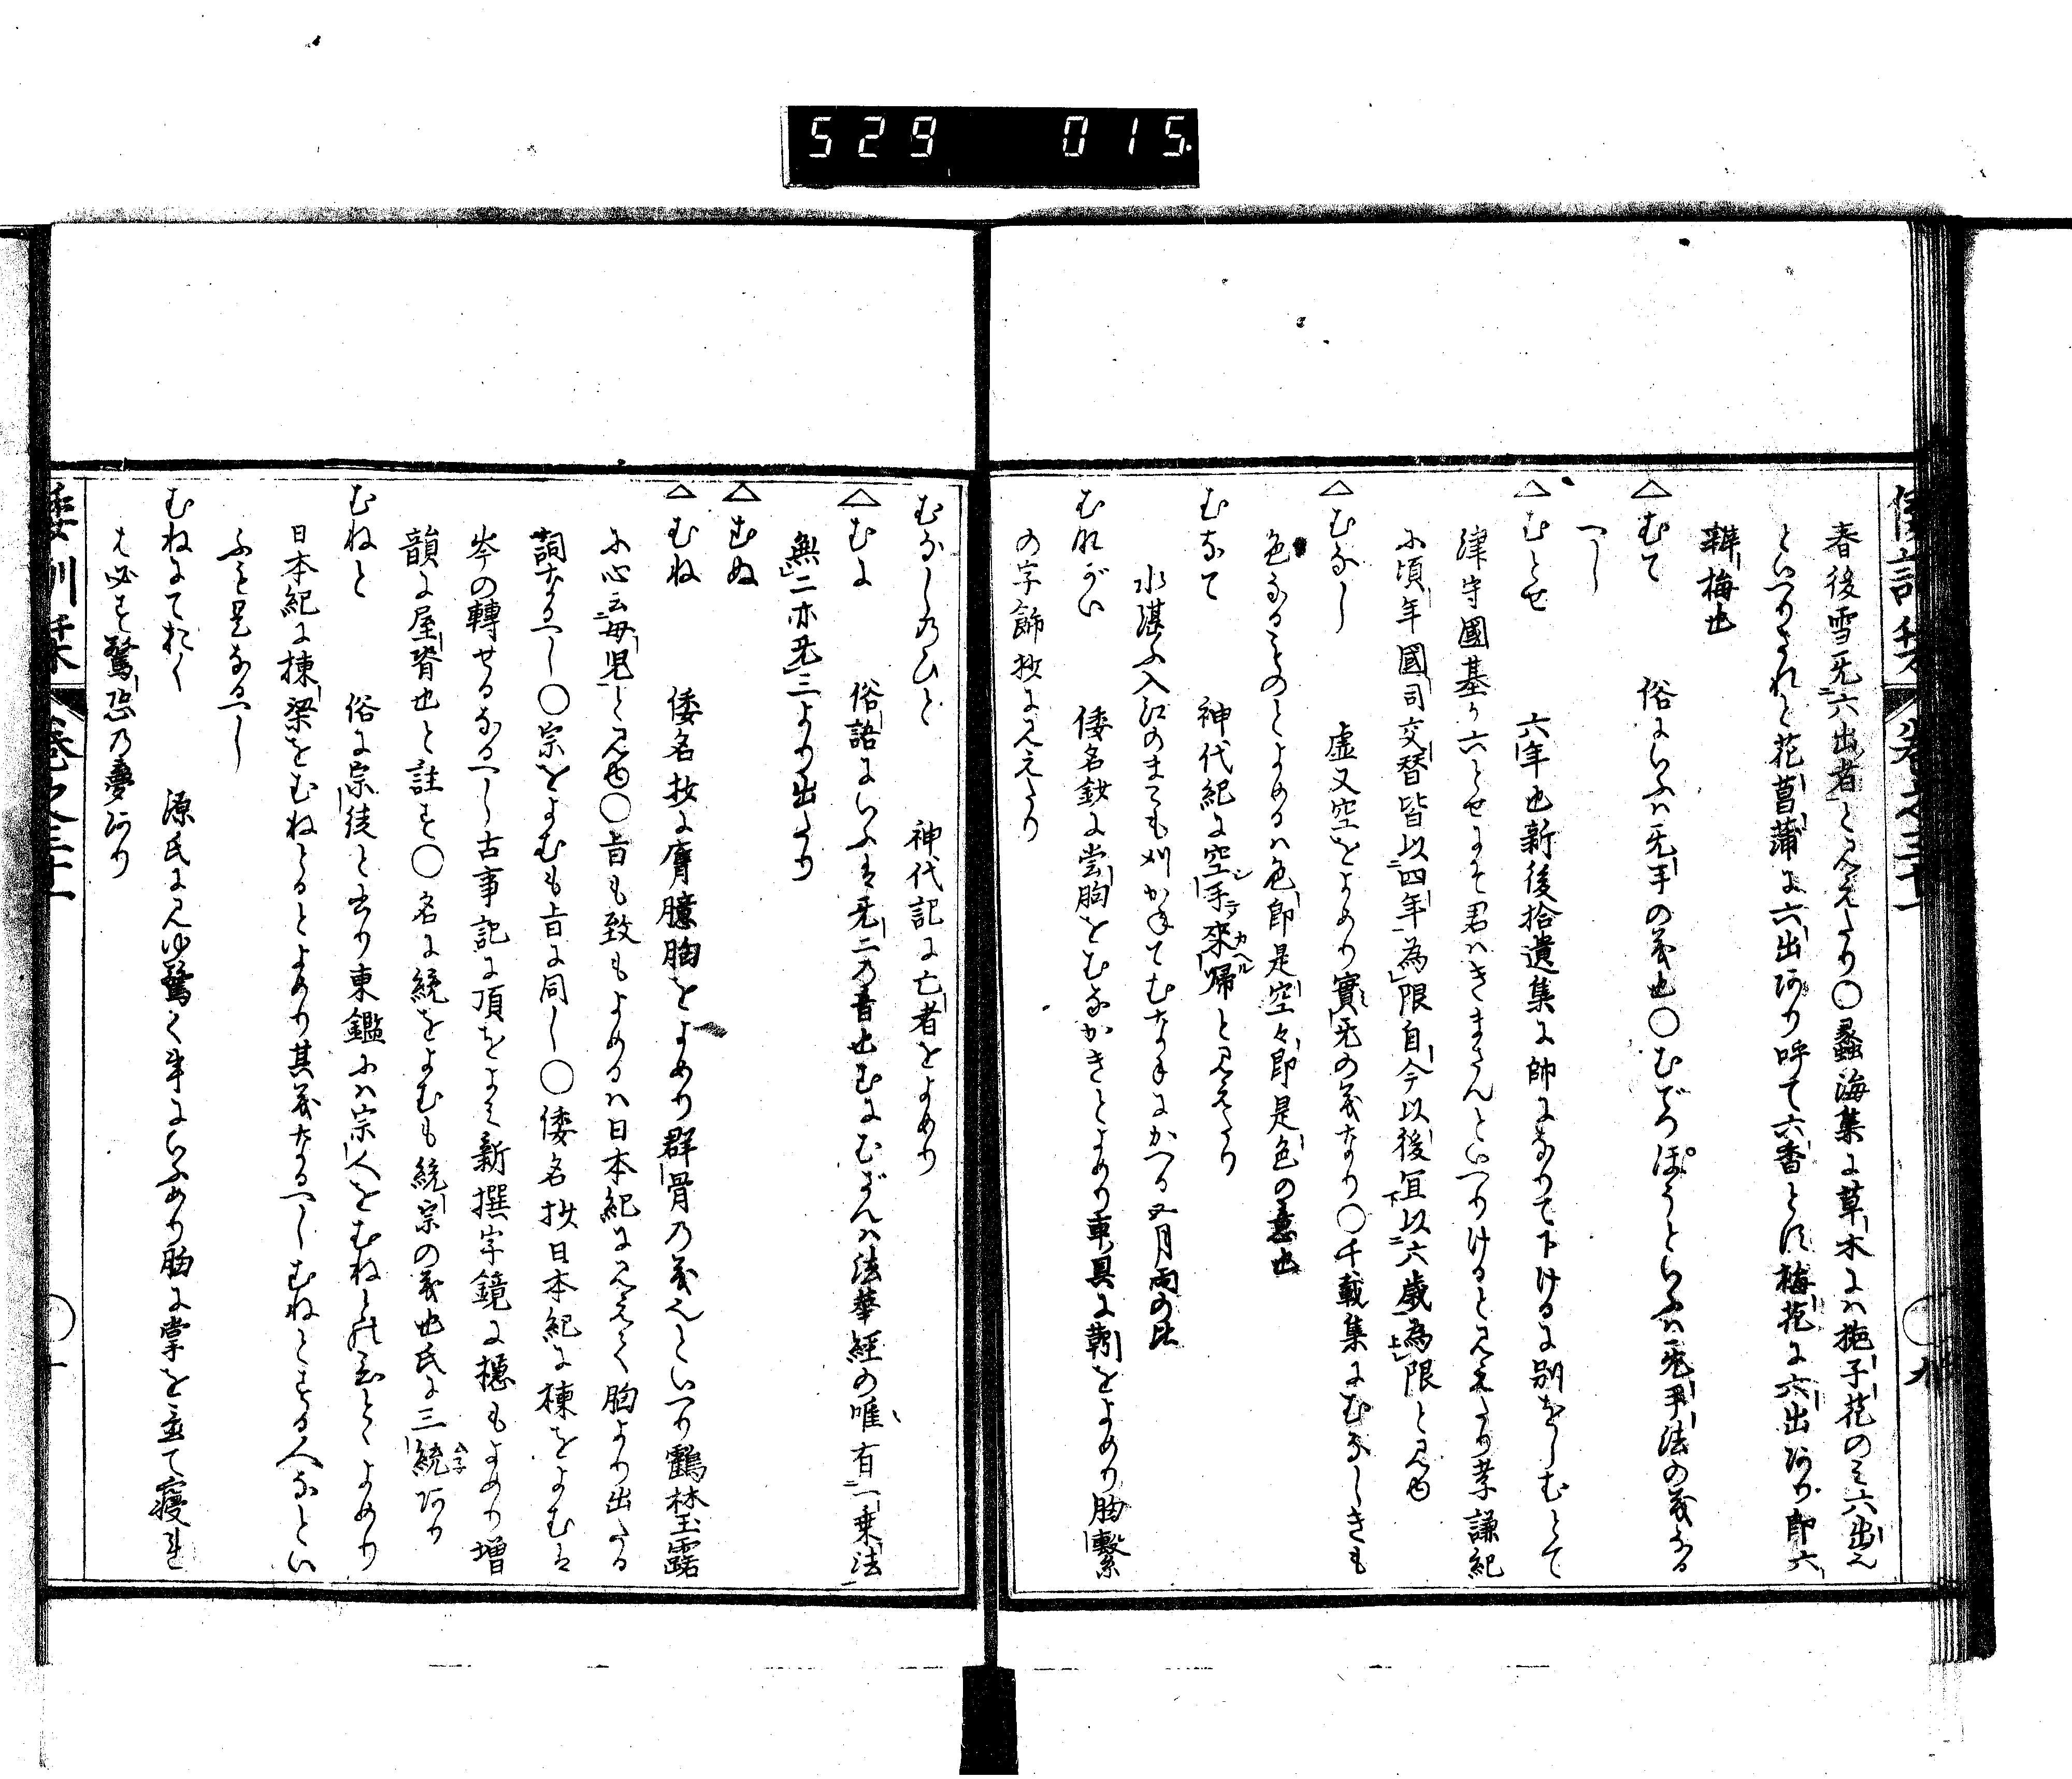 529 015
倭訓栞 巻之三十一 九
春後雪无六出者とみえたり○蠡海集に草木には梔子花のみ六出也
といへりされと花菖蒲に六出あり呼て六香とす梅花に六出あり即六
辨梅也
△むて 俗にいふは无手の義也○むでつぽうといふは无手法の義なる
へし
△むとせ 六年也新後拾遺集に帥になりて下けるに別をしむとて
津守國基か六とせにそ君はきまさんといへりけるとみえたり孝謙紀
に頃年國司交替皆以四年為限自今以後宜以六歳為限とみゆ
△むなし 虚又空をよめり實无の義なり○千載集にむなしきも
色なるものとよめるは色即是空々即是色の意也
むなて 神代紀に空手来歸とみえたり
水湛ふ入江のまこも刈かねてむなてにかへる五月雨の比
むながい 倭名鈔に當胸をむなかきとよめり車具に靷をよめり胸繋
の字飾抄にみえたり
むなしのひと 神代記に亡者をよめり
△むに 俗語にいふは无二の音也むにむざんは法華經の唯有一乗法
無二亦无三より出たり
△むぬ
△むね 倭名抄に膺臆胸をよめり群骨の義也といへり鶴林玉露
に心云母児とみゆ○旨も致もよめるは日本紀にみえて胸より出たる
詞なるへし○宗をよむも旨に同し○倭名抄日本紀に棟をよむは
岑の轉せるなるへし古事記に頂をよみ新撰字鏡に檼もよめり増
韻に屋脊也と註す○名に統をよむも統宗の義也氏に三統あり
むねと 俗に宗徒と書り東鑑には宗人をむねとのひとゝよめり
日本紀に棟梁をむねとるとよめり其義なるへしむねとする人なとい
ふも是なるへし
むねにておく 源氏にみゆ驚く事にいふめり胸に掌を立て寝れ
は必す驚恐の夢あり
倭訓栞 巻之三十一 十